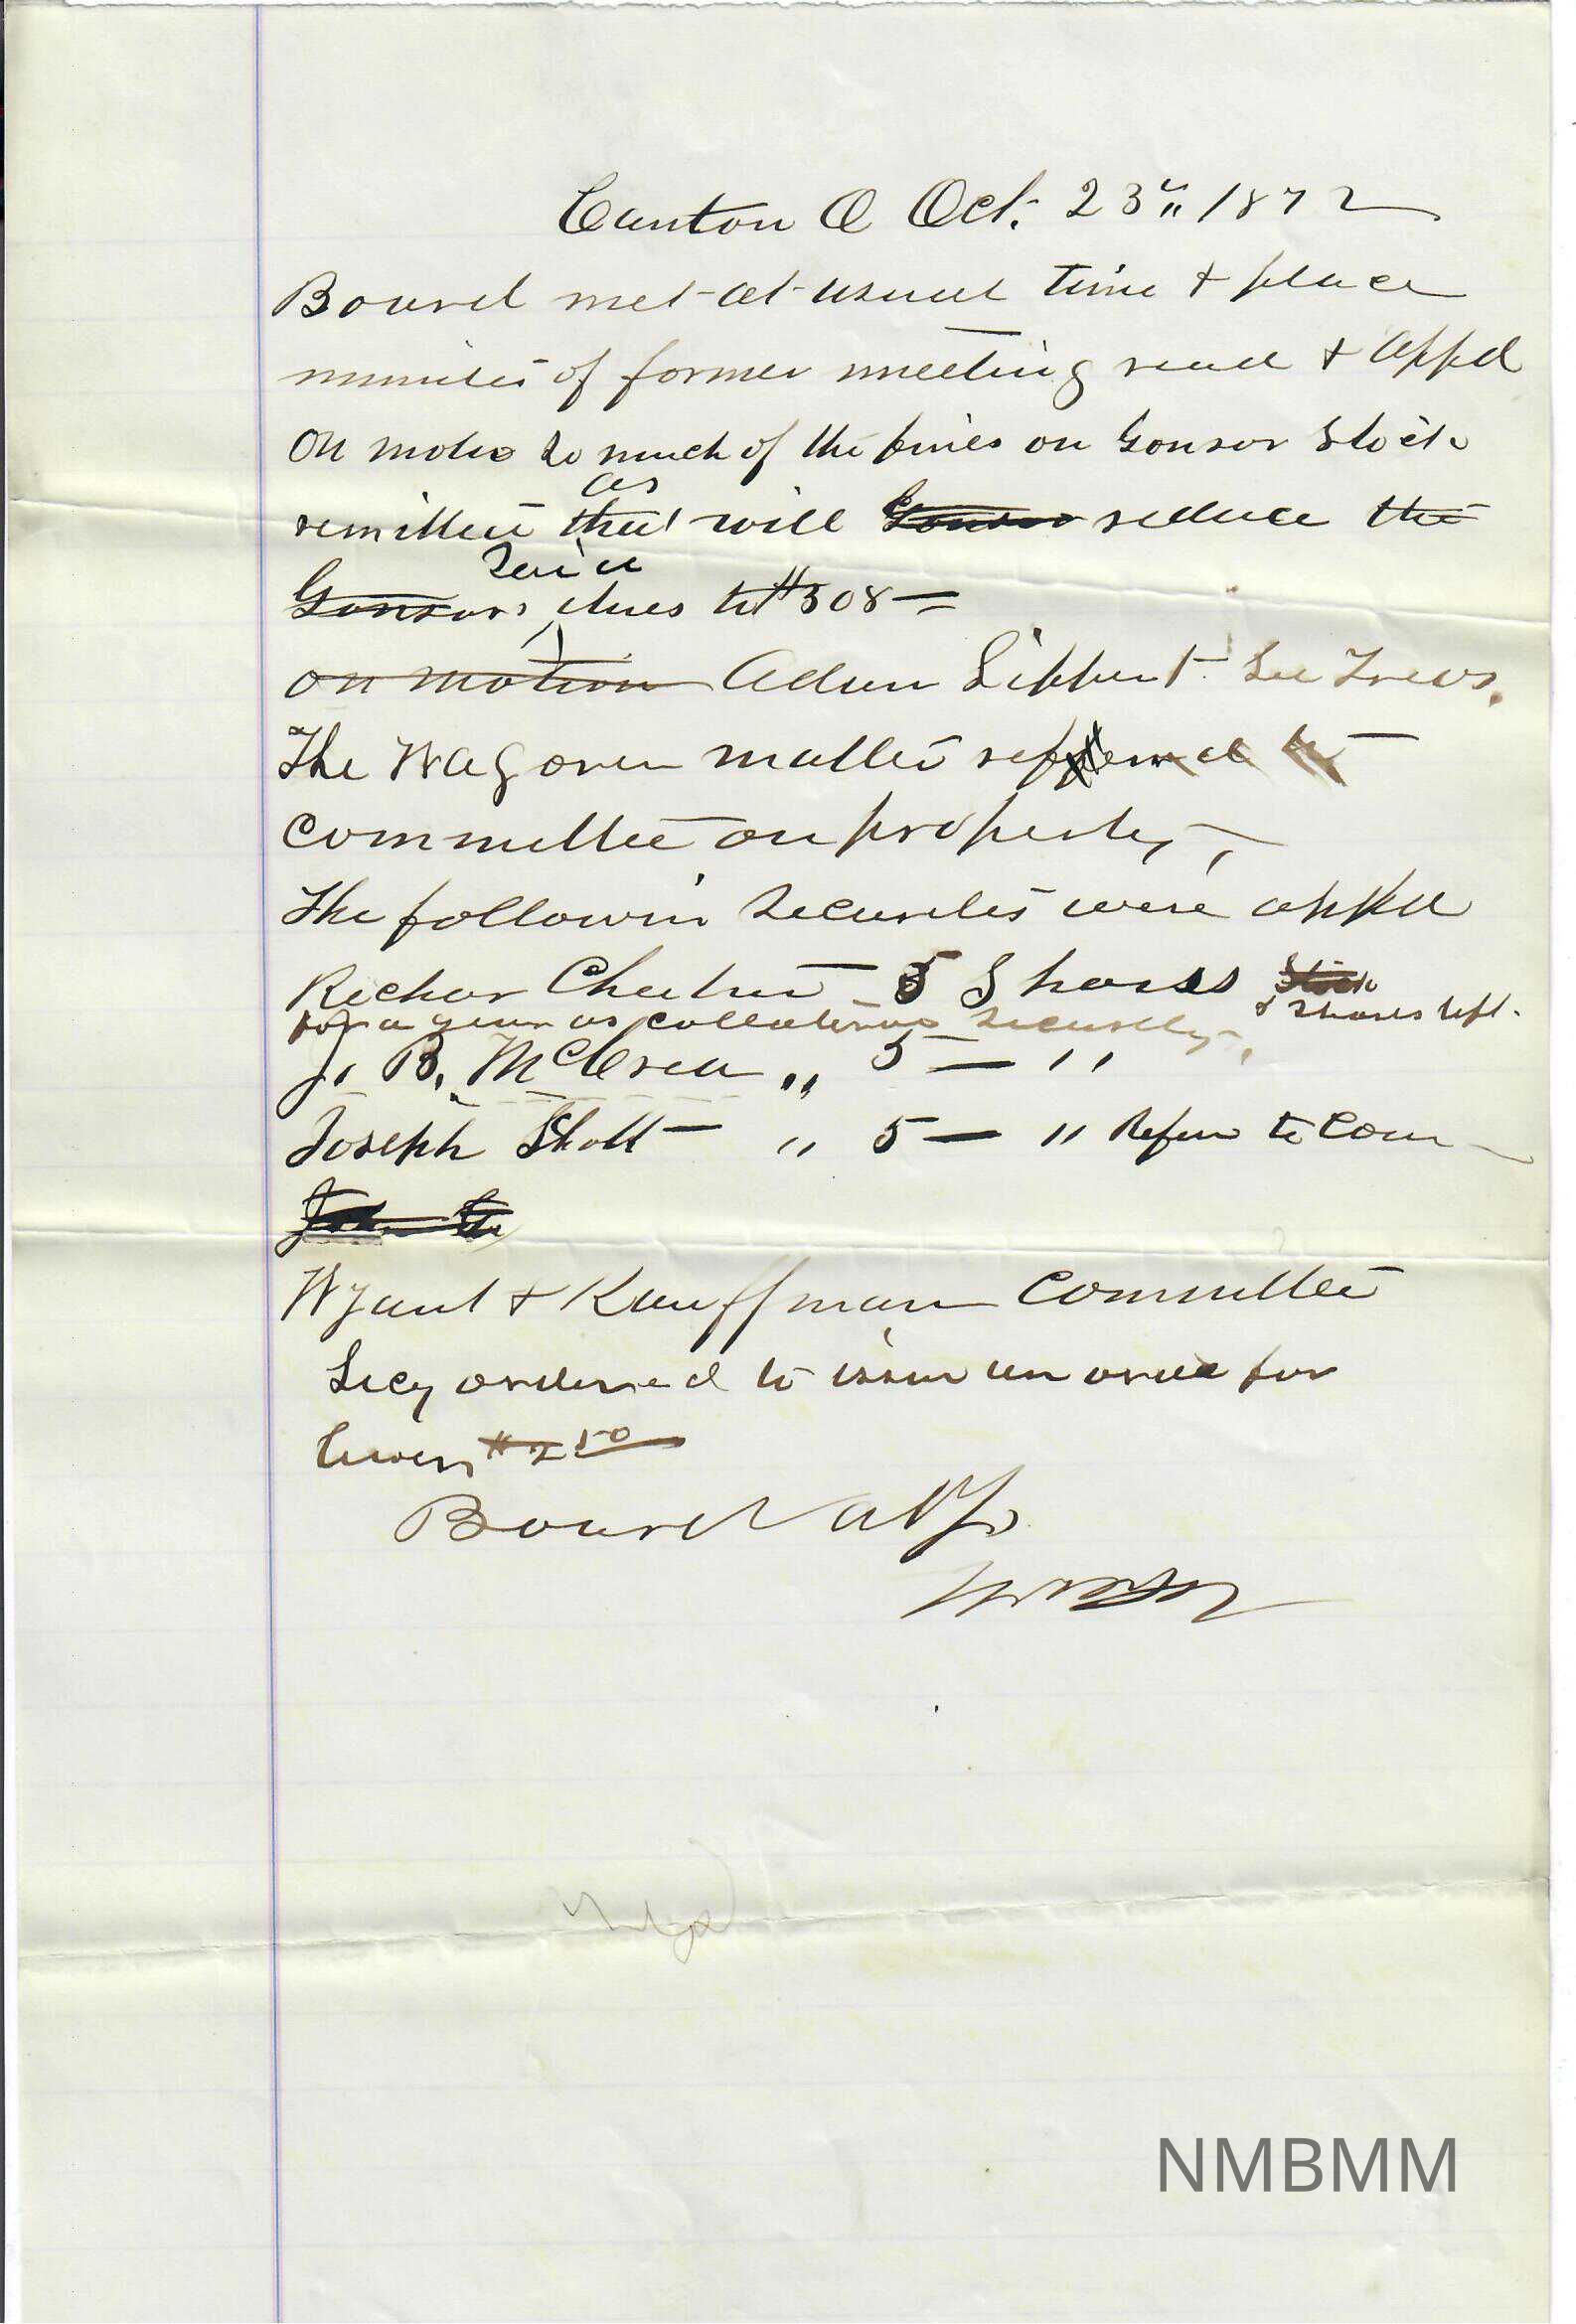 Canton O Oct. 23" 1872
Board met at usual time + place
minutes of former meeting read + appd
On motio so much of the fines on Gonsor Stock
as
remitted that will Gonsor reduce the
Said
Gonsors dues to $308=
on motion Adam Lippert See Treas.
The Wagoner matter referred to
committee on property,
The followin Securites were appd
Richar Cheetner 5 Shares Stock
& Shares left.
for a year as collateral Security,
J. B. McCrea " 5 — "
Joseph Shott " 5 — " Refer to Com
Wyant + Kauffman Committee
Secy ordered to issue an order for
$2 50
Board adj.
NMBMM